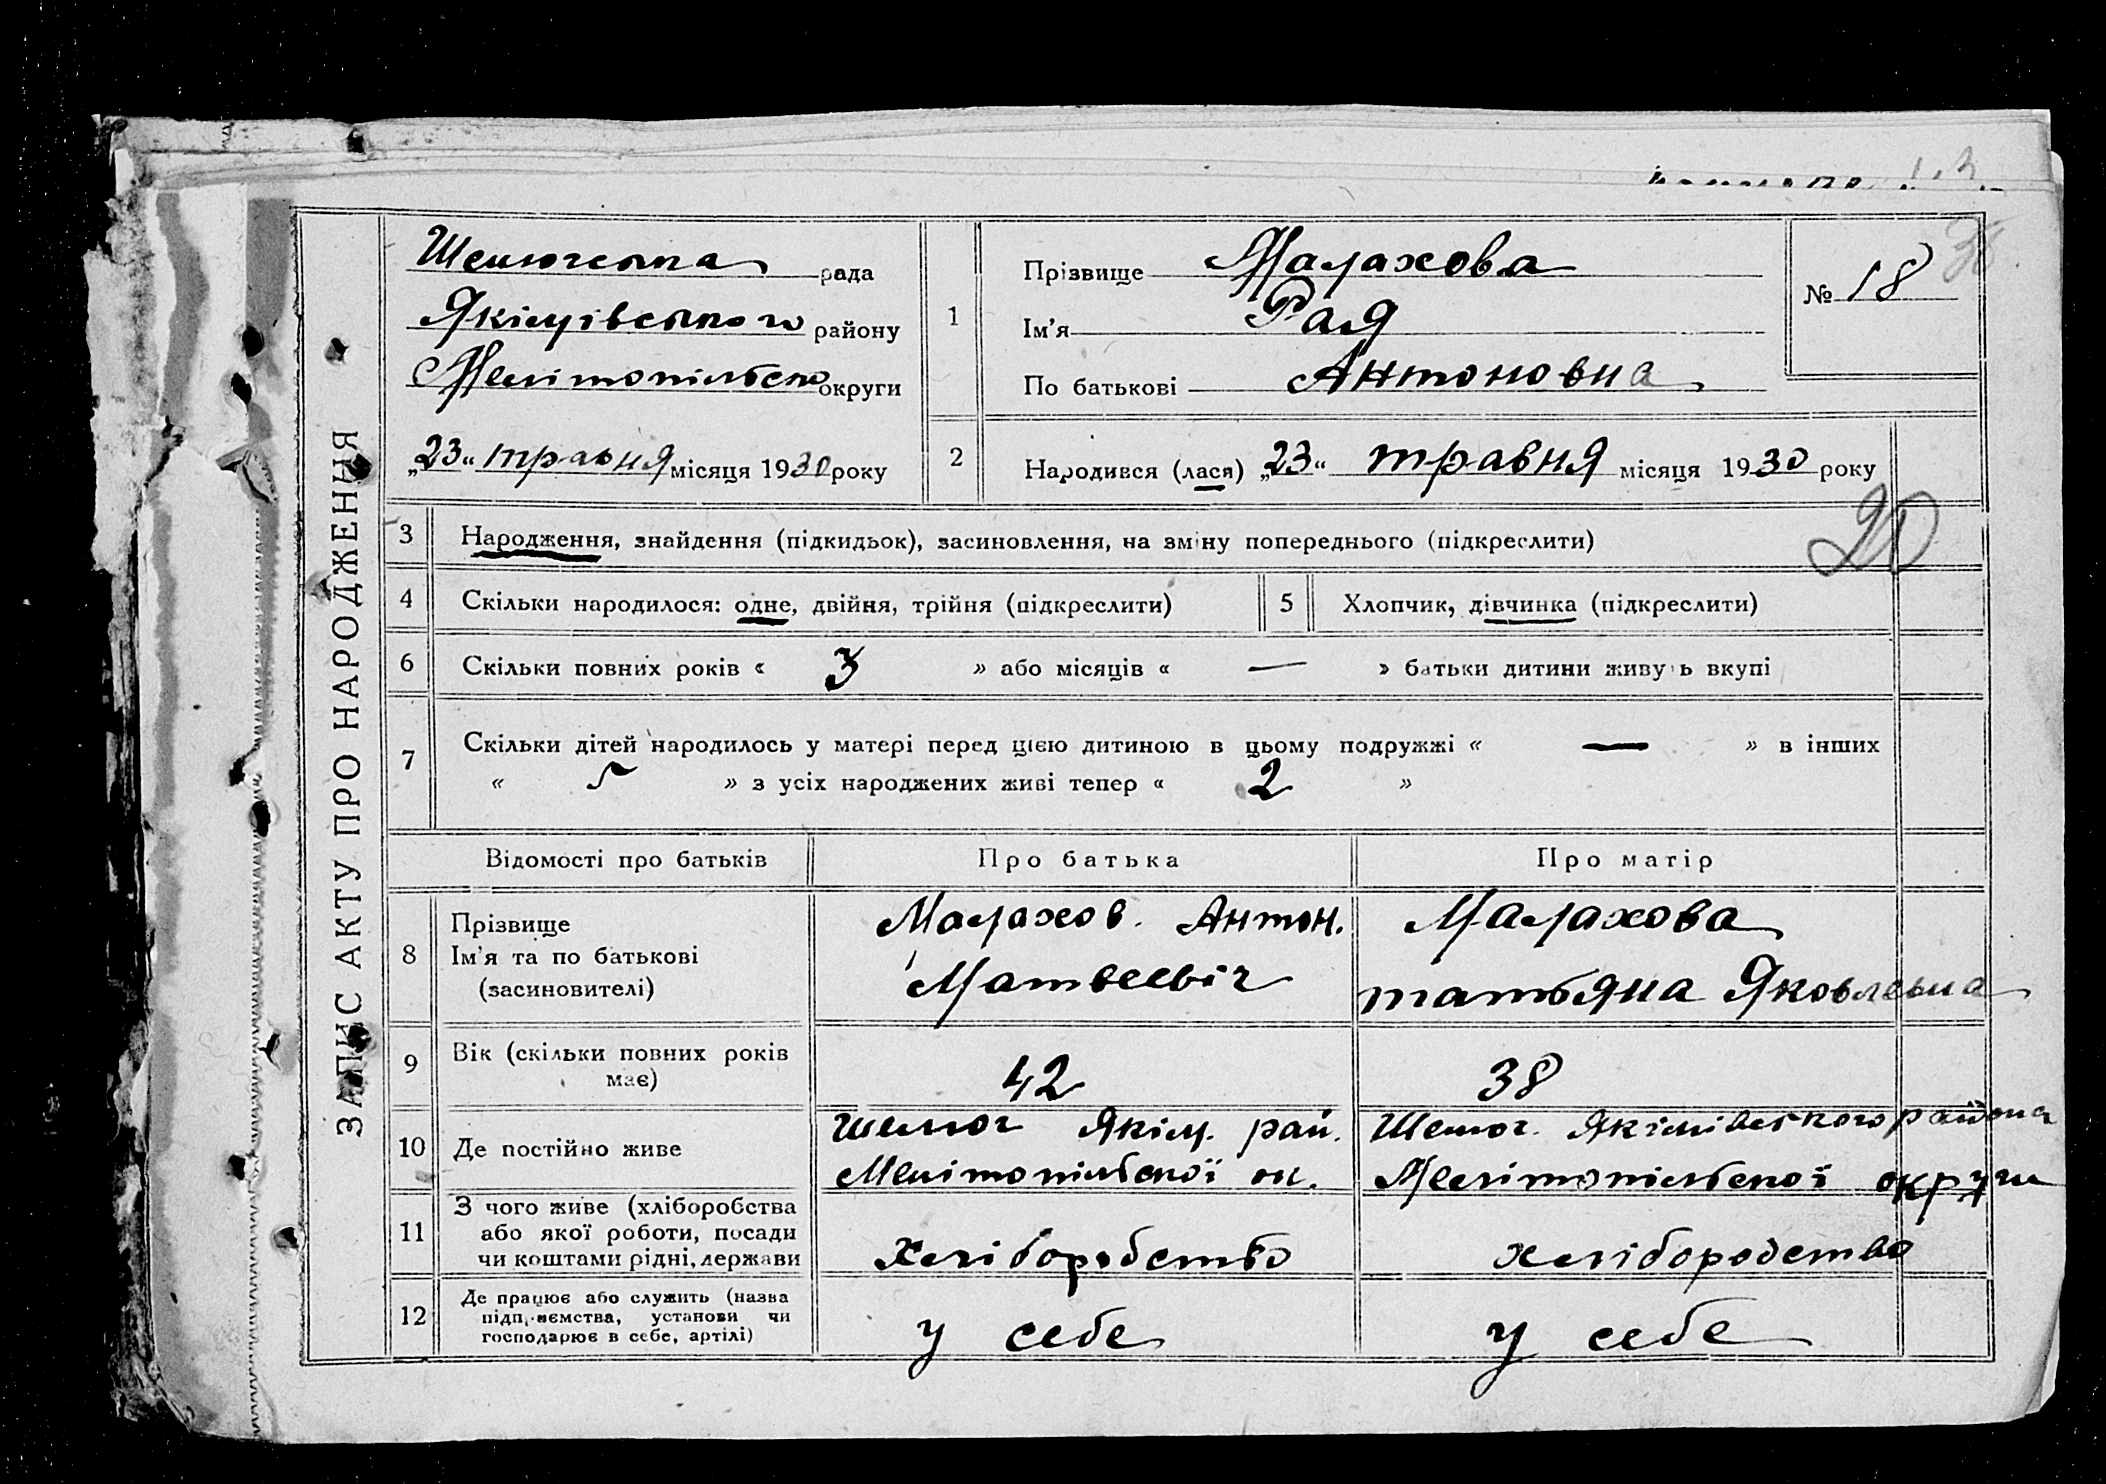 ЗАПИС АКТУ ПРО НАРОДЖЕННЯ
Шелюгська рада
Якімівського району
Мелітопільсько округи
„23“ травня місяця 1930 року
1
Прізвище Малахова
Ім'я Рая
По батькові Антоновна
№ 18
2
Народився (лася) „23“ травня місяця 1930 року
20
3 Народження, знайдення (підкидьок), засиновлення, на зміну попереднього (підкреслити)
4 Скільки народилося: одне, двійня, трійня (підкреслити)
5 Хлопчик, дівчинка (підкреслити)
6 Скільки повних років « 3 » або місяців « — » батьки дитини живуть вкупі
7 Скільки дітей народилось у матері перед цією дитиною в цьому подружжі « — » в інших
« 5 » з усіх народжених живі тепер « 2 »
Відомості про батьків Про батька Про матір
8
Прізвище
Ім'я та по батькові
(засиновителі)
Малахов. Антон.
Матвеевіч
Малахова
татьяна Яковлевна
9
Вік (скільки повних років
має)
42
38
10 Де постійно живе
Шелюг Якім. рай.
Мелітопільської ок.
Шелюг. Якімівського района
Мелітопільскої округи
11
З чого живе (хліборобства
або якої роботи, посади
чи коштами рідні, держави
Хліборобство
хліборобство
12
Де працює або служить (назва
підприємства, установи чи
господарює в себе, артілі)
у себе
у себе